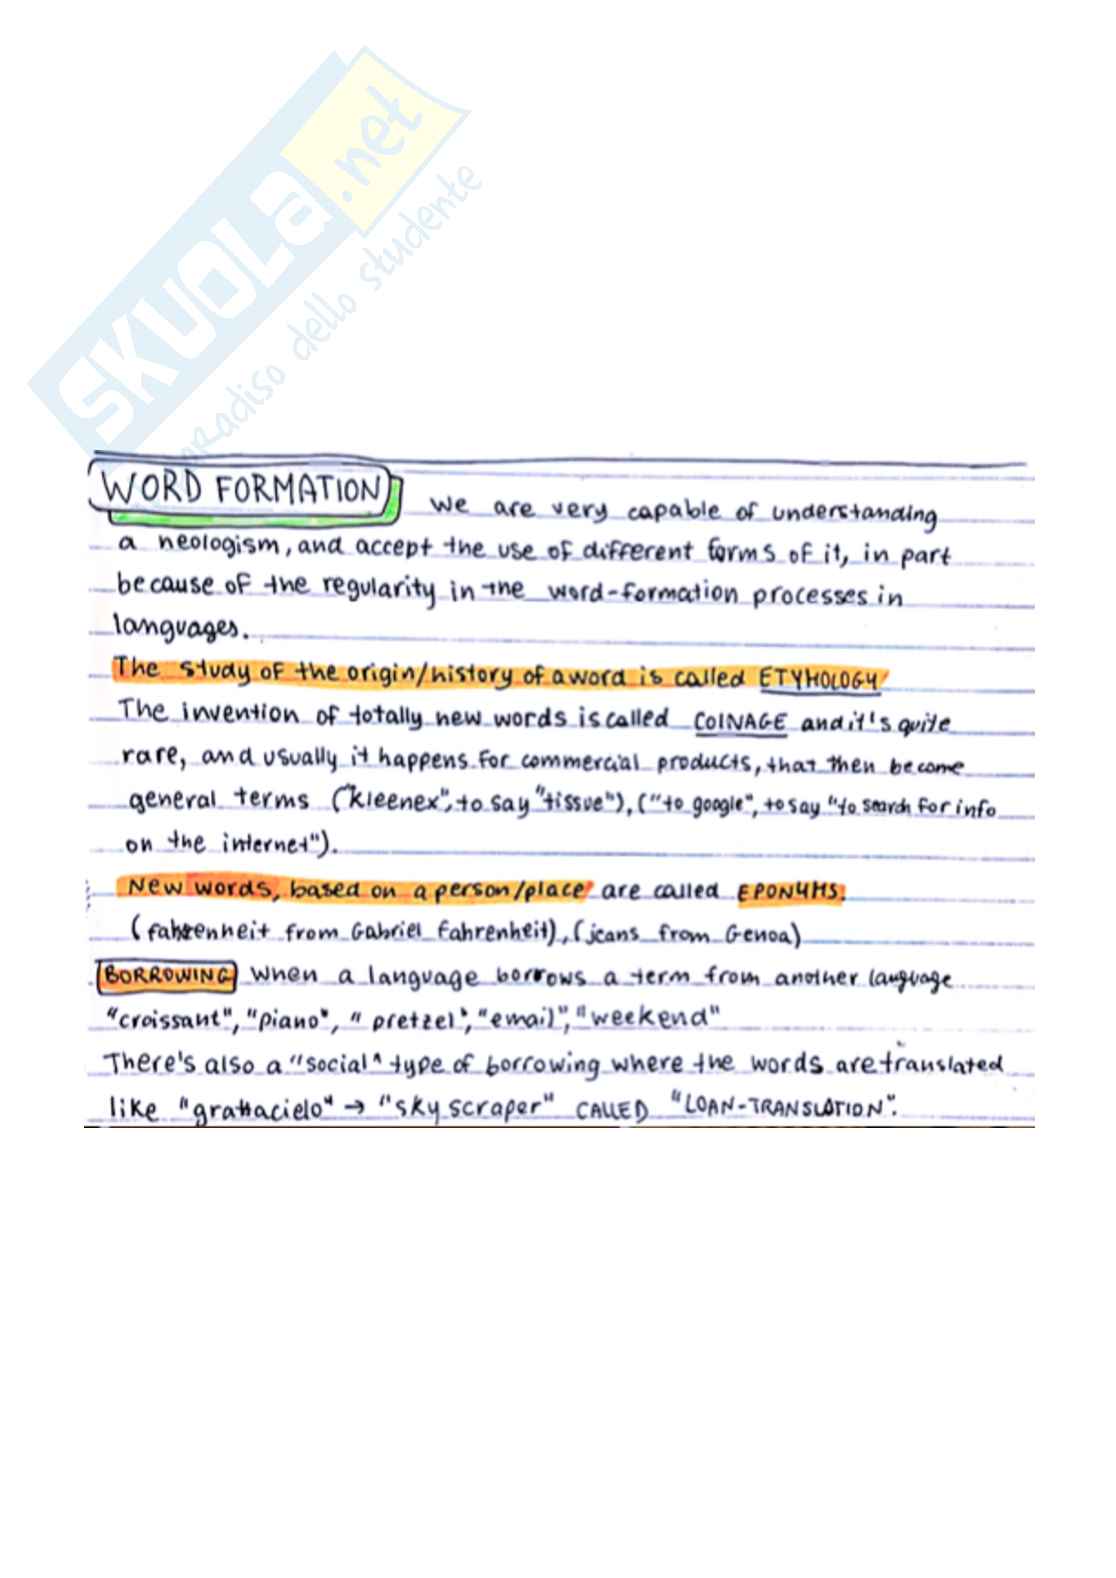 SKUOLA.net
paradiso dello studente
WORD FORMATION We are very capable of understanding
a neologism, and accept the use of different forms of it, in part
because of the regularity in the word-formation processes in
languages.
The study of the origin/history of a word is called ETYMOLOGY
The invention of totally new words is called COINAGE and it's quite
rare, and usually it happens for commercial products, that then become
general terms ("kleenex", to say "tissue"), ("to google", to say "to search for info
on the internet").
New words, based on a person/place are called EPONYMS.
(fahrenheit from Gabriel Fahrenheit), (jeans from Genoa)
BORROWING When a language borrows a term from another language
"croissant", "piano", "pretzel", "email", "weekend"
There's also a "social" type of borrowing where the words are translated
like "grattacielo" → "sky scraper" CALLED "LOAN-TRANSLATION".